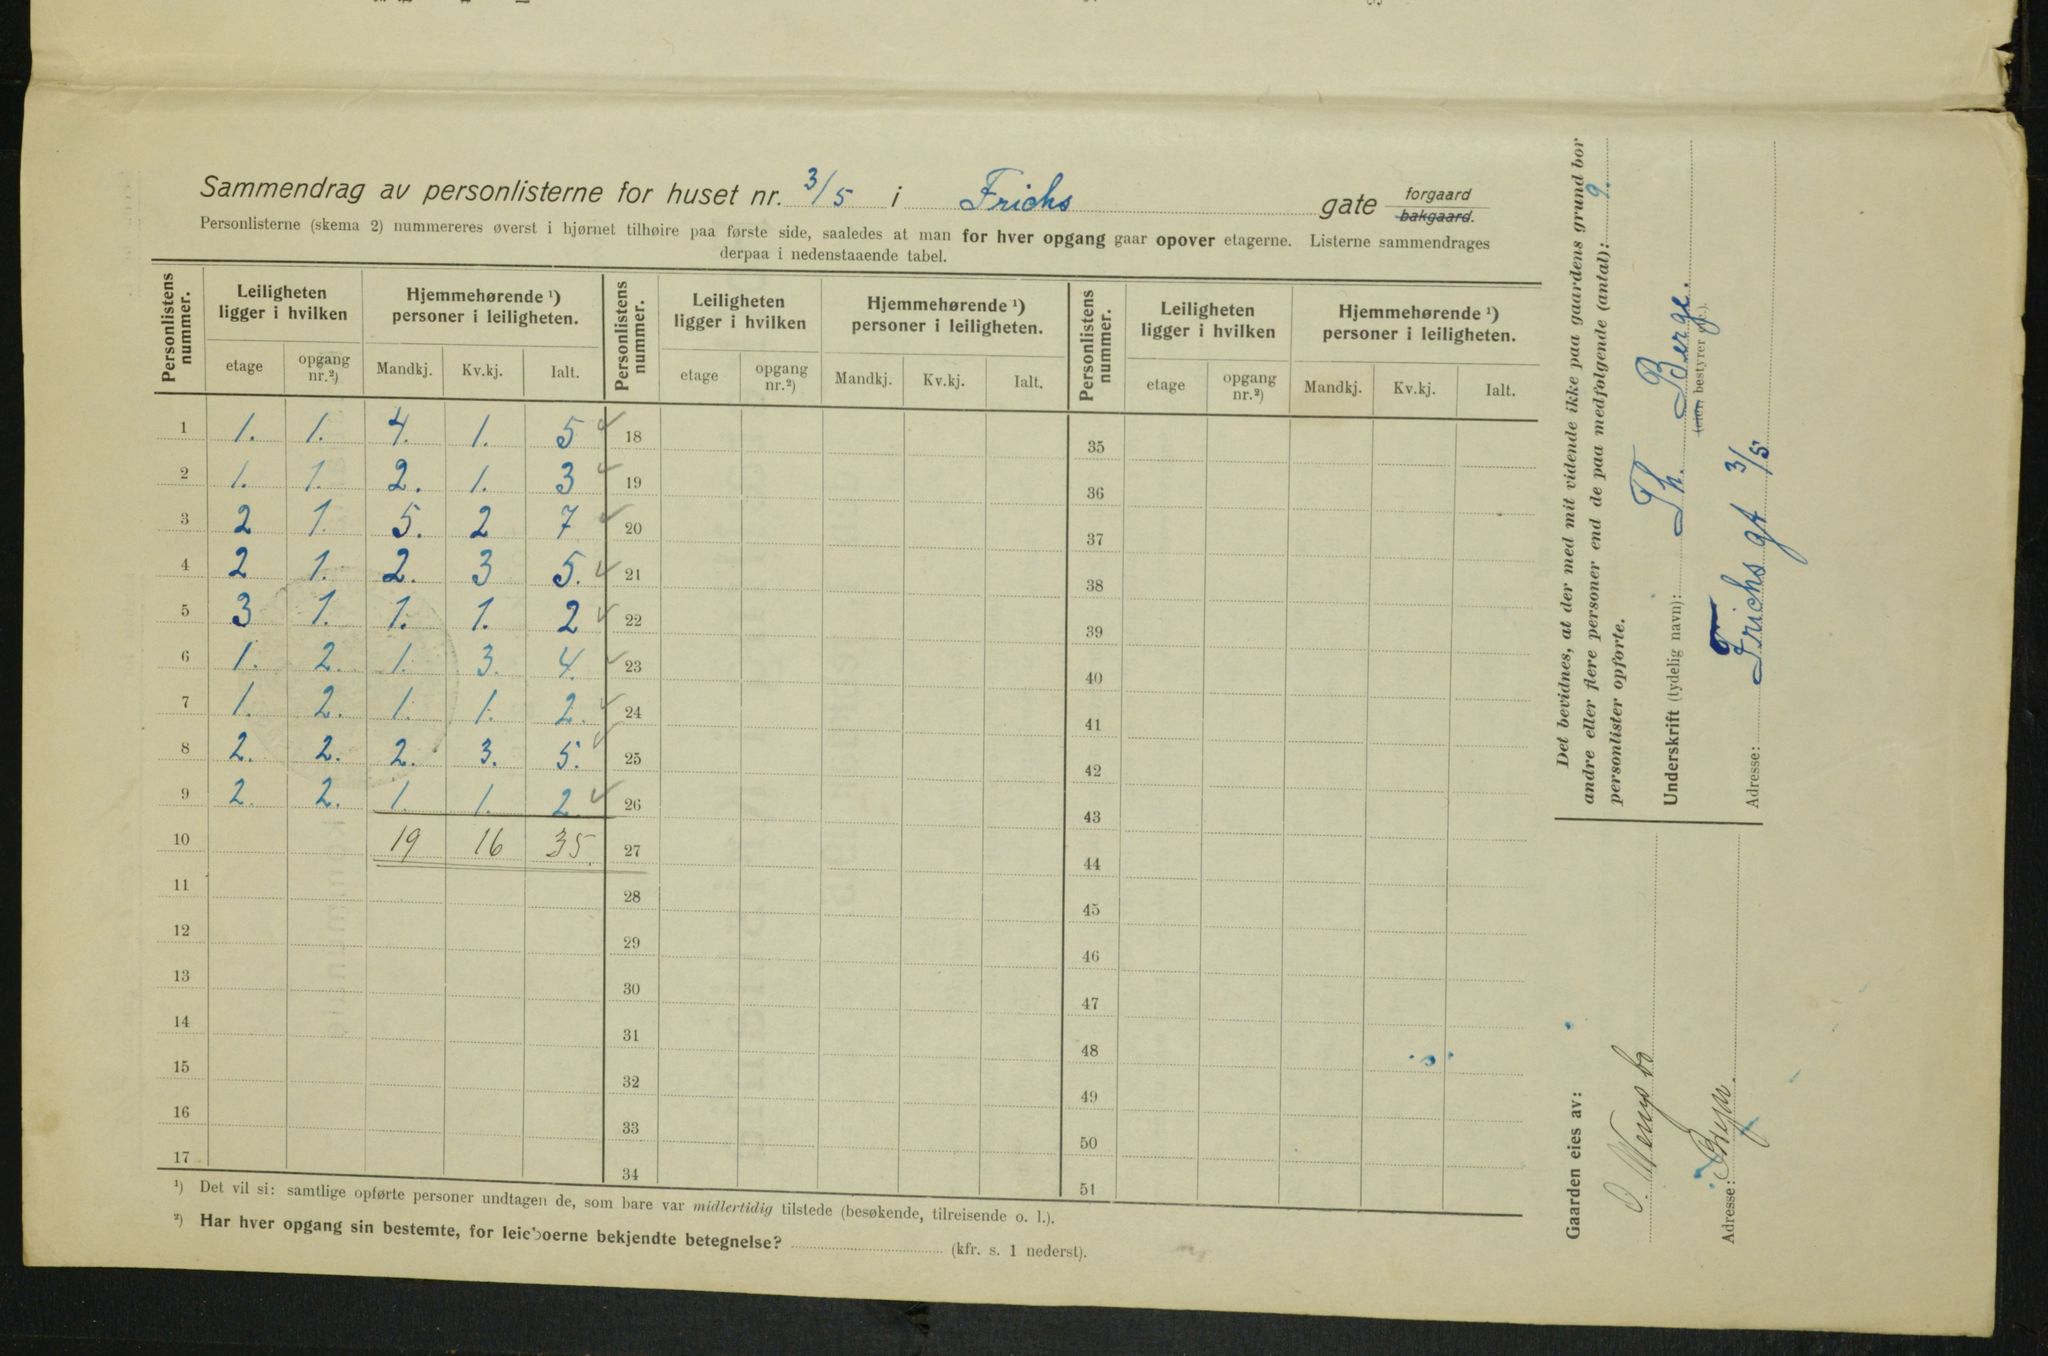 Sammendrag av personlisterne for huset nr. 3/5 i Frichs gate forgaard
bakgaard.
Personlisterne (skema 2) nummereres øverst i hjørnet tilhøire paa første side, saaledes at man for hver opgang gaar opover etagerne. Listerne sammendrages
derpaa i nedenstaaende tabel.
Personlistens nummer. Leiligheten ligger i hvilken Hjemmehørende ¹) personer i leiligheten. Personlistens nummer. Leiligheten ligger i hvilken Hjemmehørende ¹) personer i leiligheten. Personlistens nummer. Leiligheten ligger i hvilken Hjemmehørende ¹) personer i leiligheten.
etage opgang nr.²) Mandkj. Kv.kj. Ialt. etage opgang nr.²) Mandkj. Kv.kj. Ialt. etage opgang nr.²) Mandkj. Kv.kj. Ialt.
1 1. 1. 4. 1. 5 18 35
2 1. 1. 2. 1. 3 19 36
3 2 1. 5. 2 7 20 37
4 2 1. 2. 3 5. 21 38
5 3 1. 1. 1. 2 22 39
6 1. 2. 1. 3. 4. 23 40
7 1. 2. 1. 1. 2. 24 41
8 2. 2. 2. 3. 5. 25 42
9 2. 2. 1. 1. 2. 26 43
10 19 16 35. 27 44
11 28 45
12 29 46
13 30 47
14 31 48
15 32 49
16 33 50
17 34 51
¹) Det vil si: samtlige opførte personer undtagen de, som bare var midlertidig tilstede (besøkende, tilreisende o. l.).
²) Har hver opgang sin bestemte, for leieboerne bekjendte betegnelse? (kfr. s. 1 nederst).
Det bevidnes, at der med mit vidende ikke paa gaardens grund bor
andre eller flere personer end de paa medfølgende (antal): 9.
personlister opførte.
Underskrift (tydelig navn): Th. Berge.
(eier, bestyrer etc.).
Adresse: Frichs gt 3/5
Gaarden eies av:
Adresse: